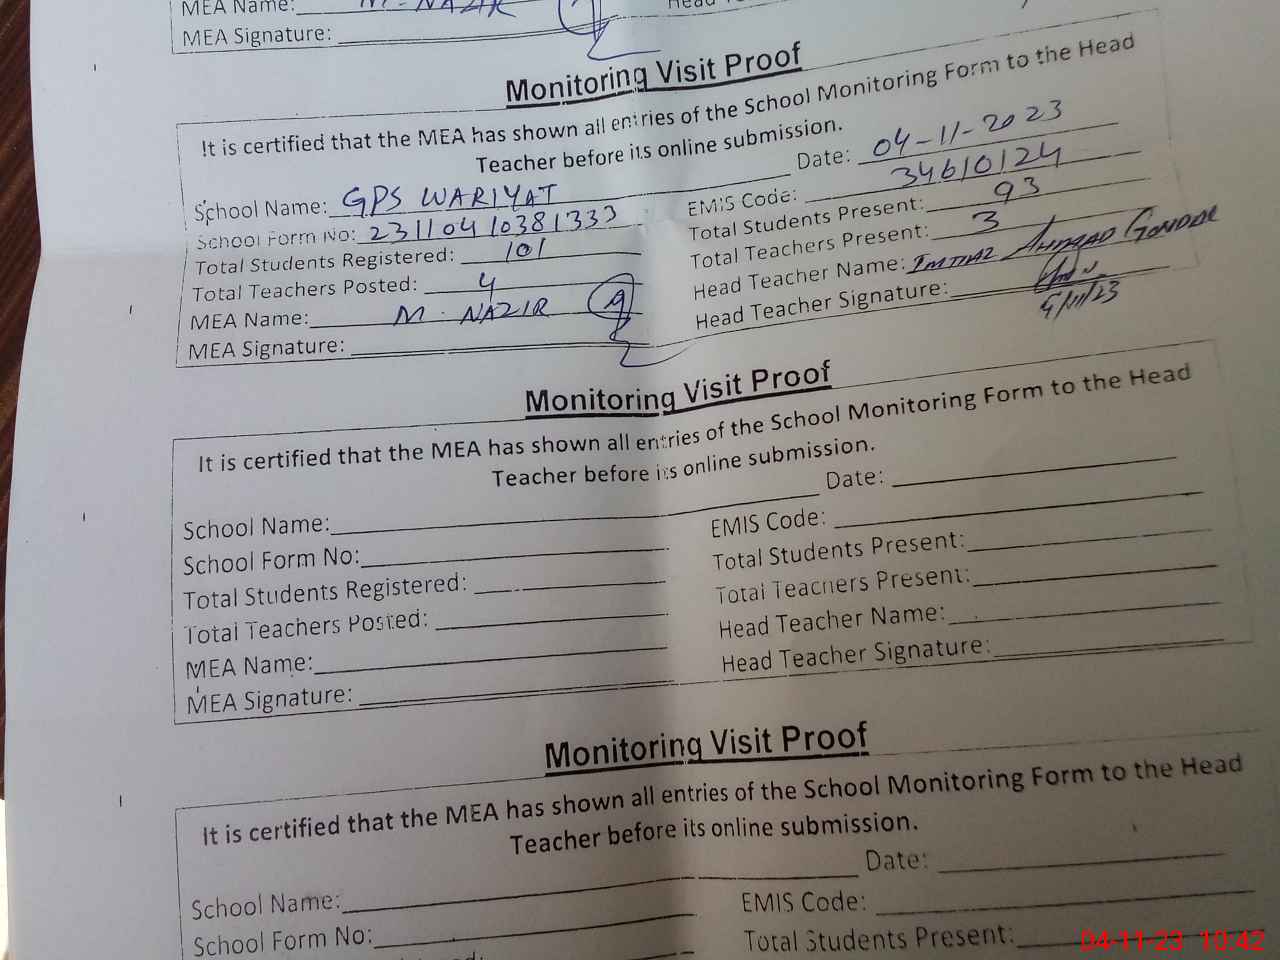 MEA Name: M. NAZIR
MEA Signature:
Monitoring Visit Proof
It is certified that the MEA has shown all entries of the School Monitoring Form to the Head
Teacher before its online submission.
Date: 04-11-2023
School Name: GPS WARIYAT
EMIS Code: 34610124
School Form No: 23110410381333
Total Students Present: 93
Total Students Registered: 101
Total Teachers Present: 3
Total Teachers Posted: 4
Head Teacher Name: IMTIAZ AHMAD GONDAL
MEA Name: M. NAZIR
Head Teacher Signature:
MEA Signature:
Monitoring Visit Proof
It is certified that the MEA has shown all entries of the School Monitoring Form to the Head
Teacher before its online submission.
Date:
School Name:
EMIS Code:
School Form No:
Total Students Present:
Total Students Registered:
Total Teachers Present:
Total Teachers Posted:
Head Teacher Name:
MEA Name:
Head Teacher Signature:
MEA Signature:
Monitoring Visit Proof
It is certified that the MEA has shown all entries of the School Monitoring Form to the Head
Teacher before its online submission.
Date:
School Name:
EMIS Code:
School Form No:
Total Students Present:
04-11-23 10:42